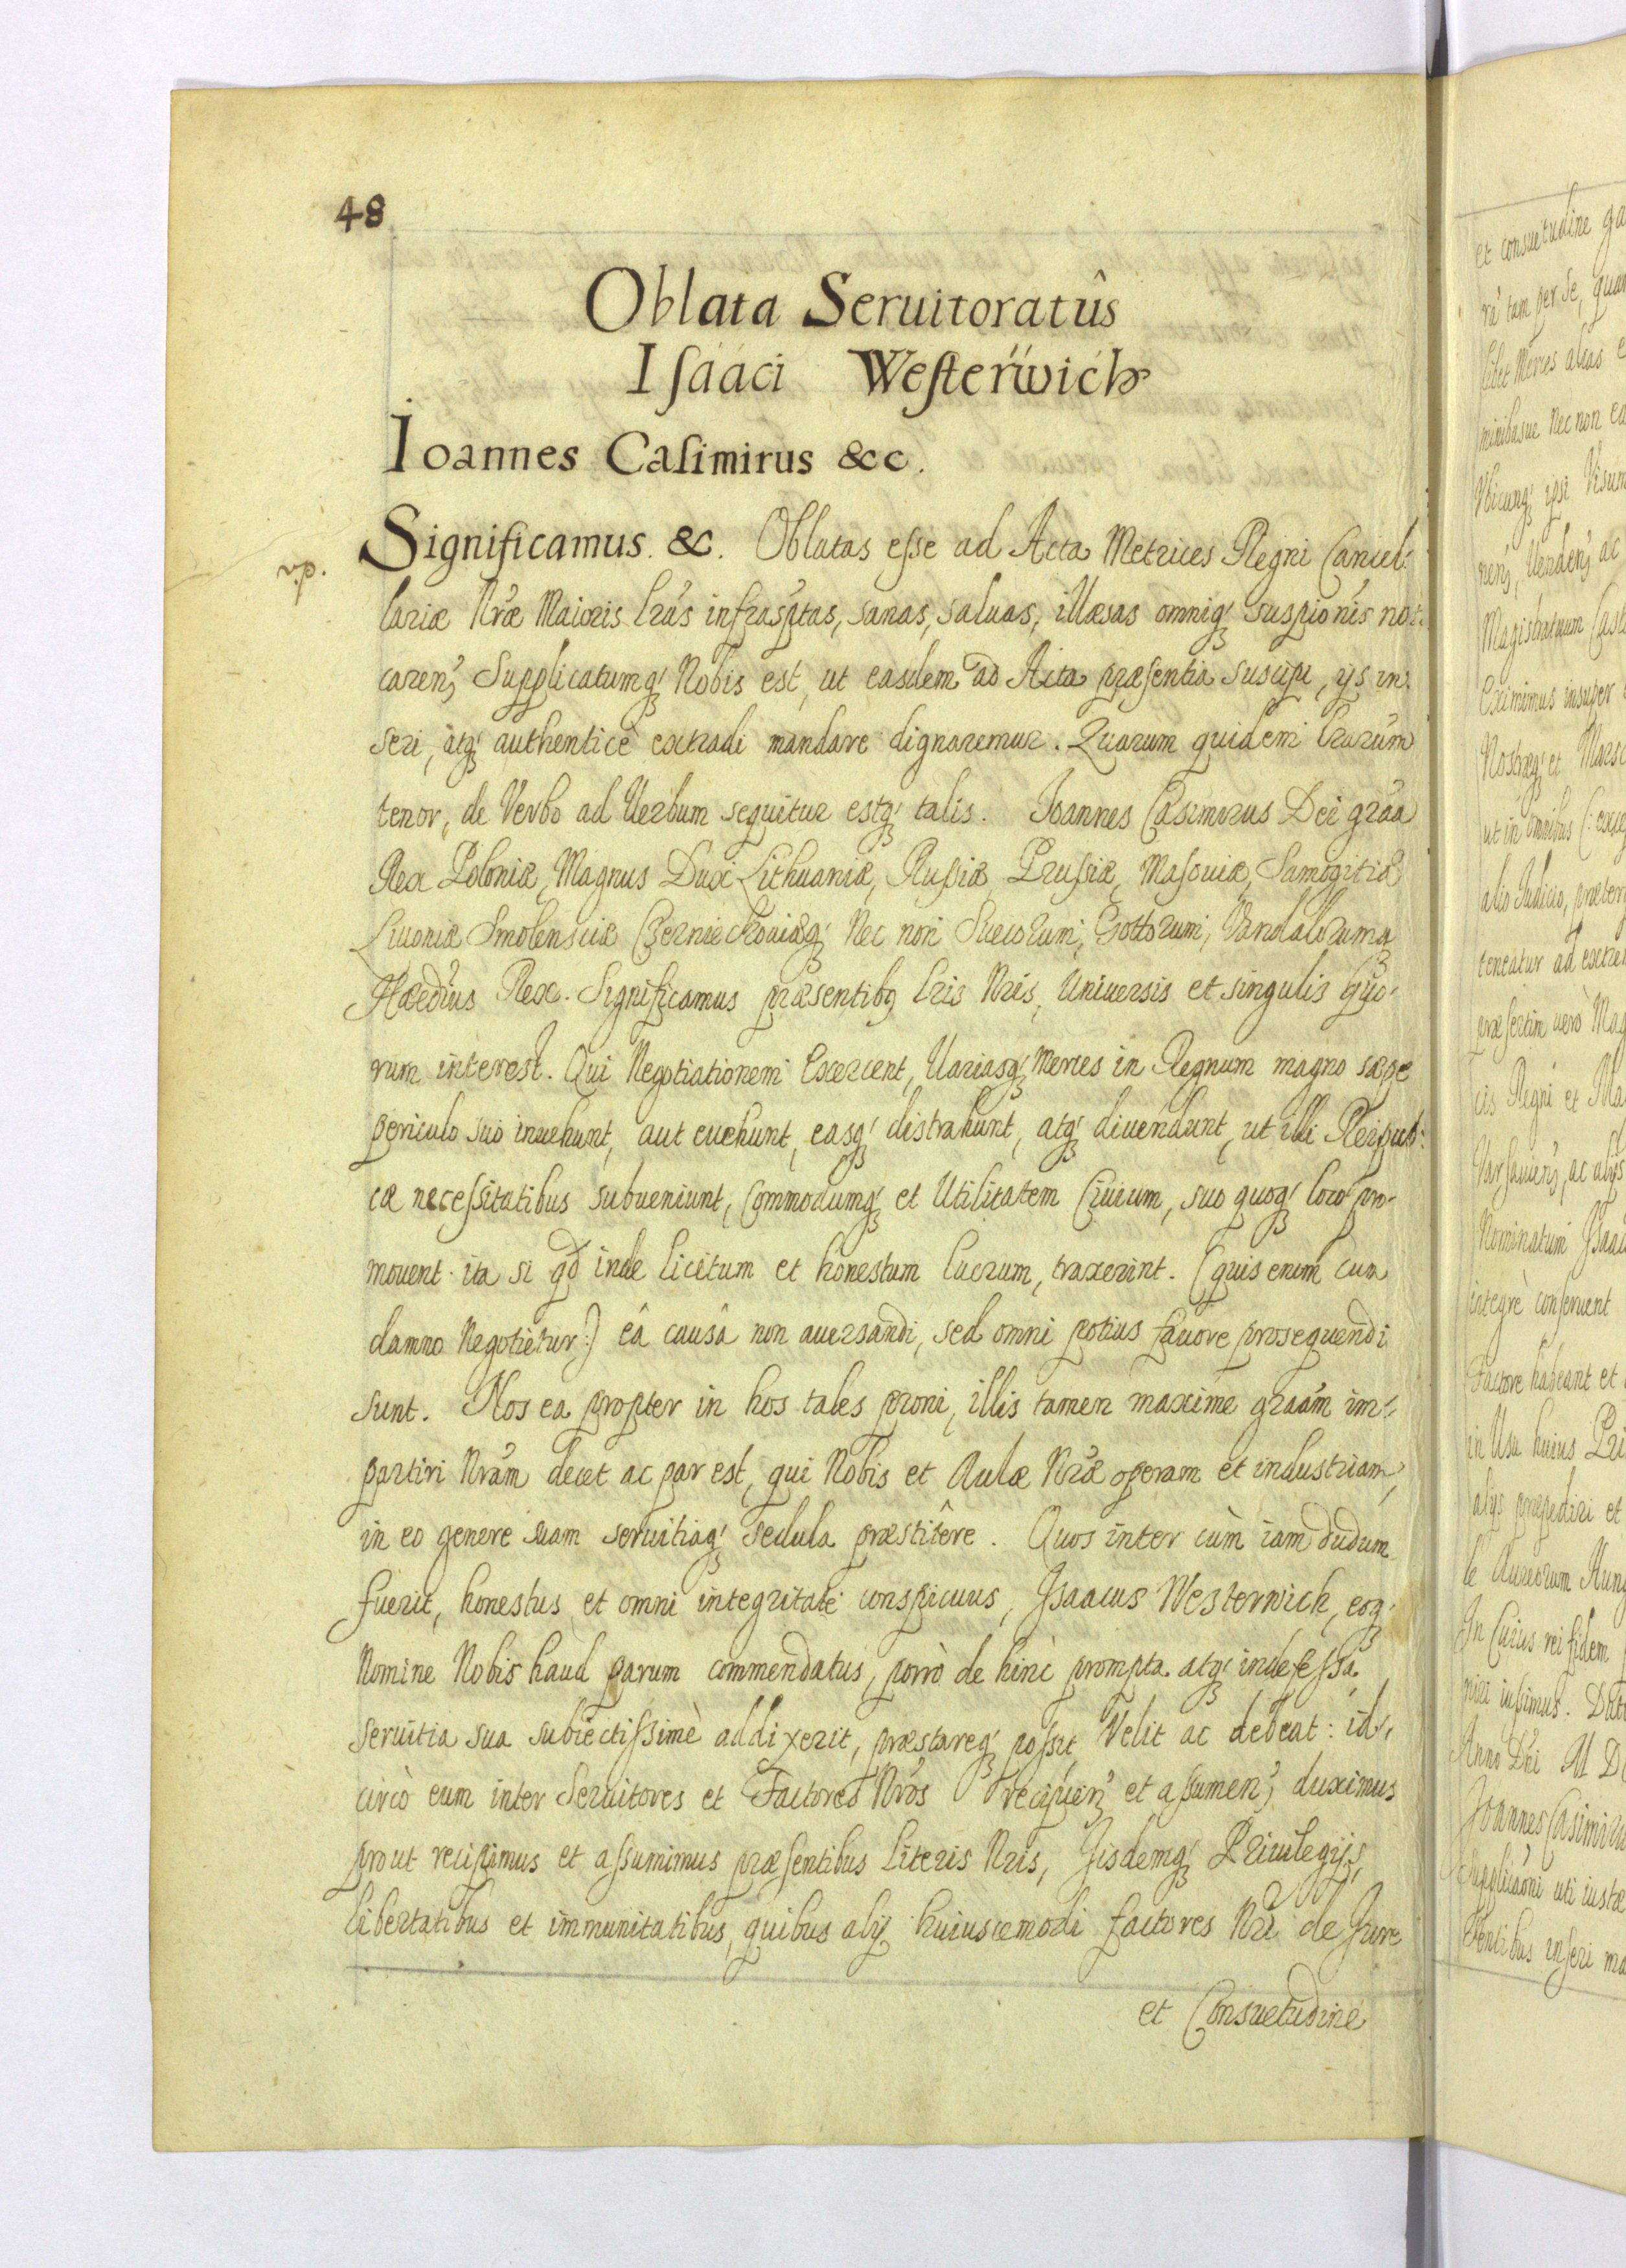 48
Oblata Seruitoratûs
Isááci Westerẅich
Ioannes Casimirus &c.
Significamus. &c. Oblatas esse ad Acta Metrices Regni Cancel:
lariæ Nr̃æ Maioris Lr̃ás infrasp̃tas, sanas, saluas, illæsas omniq́ȝ suspionis not:
caren̓, Supplicatumq́ȝ Nobis est, ut easdem ad Acta præsentia suscipi, ijs in:
seri, atq́ȝ authenticè extradi mandare dignaremur. Quarum quidem Lr̃arum
tenor, de Verbo ad Uerbum sequitur estq́ȝ talis. Ioannes Casimirus Dei gr̃aa
Rex Poloniæ, Magnus Dux Lithuaniæ, Russiæ Prussiæ, Masouiæ, Samogitiæ
Liuoniæ Smolensciæ Czerniechouiæq́ȝ Nec non Suecorum, Gottorum, Vandalorumq́ȝ
Hæedius Rex. Significamus præsentibȝ Lr̃is Nr̃is, Uniuersis et singulis quo:
rum interest. Qui Negotiationem Exercent, Uariasq́ȝ Merces in Regnum magno sæpe
periculo suo inuehunt, aut euehunt, easq́ȝ distrahunt, atq́ȝ diuendunt, ut illi Reipub:
cæ necessitatibus subueniunt, Commodumq́ȝ et Utilitatem Ciuium, suo quoq́ȝ loco pro-
mouent ita si qd̃ inde licitum et honestum lucrum, traxerint. (quis enim cum
damno Negotietur:) eâ causâ non auersandi, sed omni potius fauore prosequendi
sunt. Nos ea propter in hos tales proni, illis tamen maxime graãm im:
partiri Nr̃ám decet ac par est, qui Nobis et Aulæ Nr̃æ operam et industriam,
in eo genere suam seruitiaq́ȝ sedula præstitêre. Quos inter cùm iam dudum
fuerit, honestus et omni integritate conspicuus, Isaacus Westerwich, eoq́ȝ
Nomine Nobis haud parum commendatus, porrò de hinc prompta atq́ȝ indefessa
seruitia sua subiectissimè addixerit, præstareq́ȝ possit Velit ac debeat: id:
circò eum inter Seruitores et Factores Nr̃os recipien̓ et assumen̓, duximus
prout recipimus et assumimus præsentibus Literis Nr̃is, Iisdemq́ȝ Priuilegijs,
libertatibus et immunitatibus, quibus alij huiuscemodi factores Nr̃i de Iure
et Consuetudine
et consuetudine
tam per se,
Merces alias
Nec non
ipsi
ac
Magistratuum
Eximimus insuper
et
ut in omnibus
alio Iudicio,
teneatur ad
præsertim uerò
Regni et
ac alijs
Nominatum
integrè conseruent
Factore habeant et
in Usu huius
alijs præpediri et
Aureorum
In Cuius rei fidem
iussimus.
Anno Dñi M
Ioannes
uti iustæ
inseri